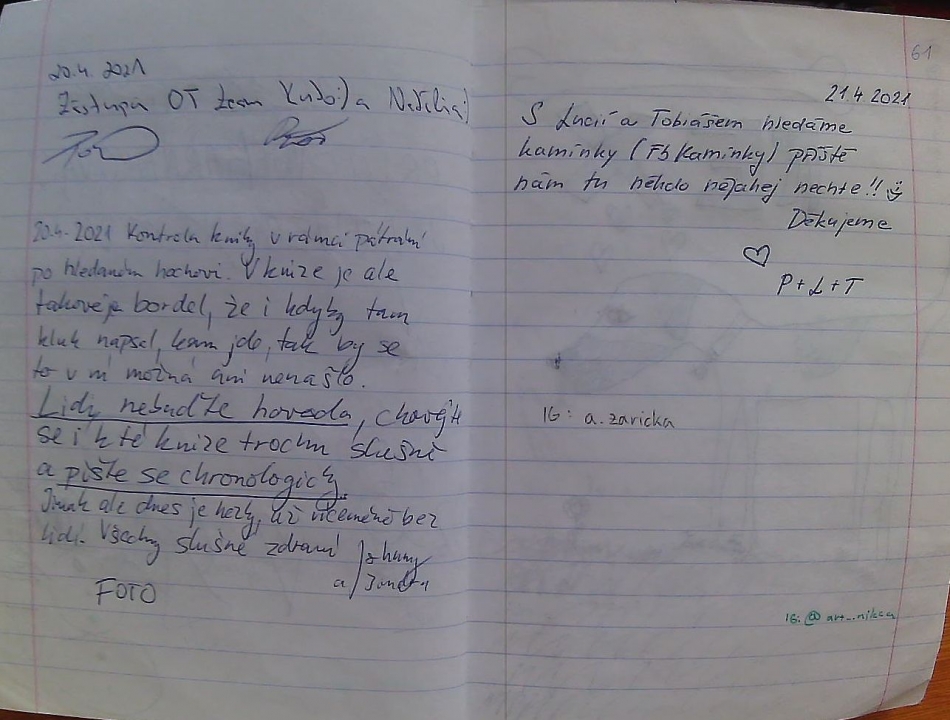 20.4. 2021
Zástupa OT team Kubo:) a Natálka:)
20.4.2021 Kontrola knihy v rámci pátrání
po hledaném hochovi. V knize je ale
takovej bordel, že i kdyby tam
kluk napsal, kam jde, tak by se
to v ní možná ani nenašlo.
Lidi, nebuďte hovada, chovejte
se i k té knize trochu slušně
a pište se chronologicky.
Jinak ale dnes je hezky, až víceméně bez
lidí. Všechny slušné zdraví
a Jindra
FOTO
61
21.4 2021
S Lucií a Tobiášem hledáme
kamínky (Fb Kamínky) příště
nám tu někdo nějakej nechte!!
Děkujeme
P + L + T
IG: a.zaricka
IG: @ art_nikca